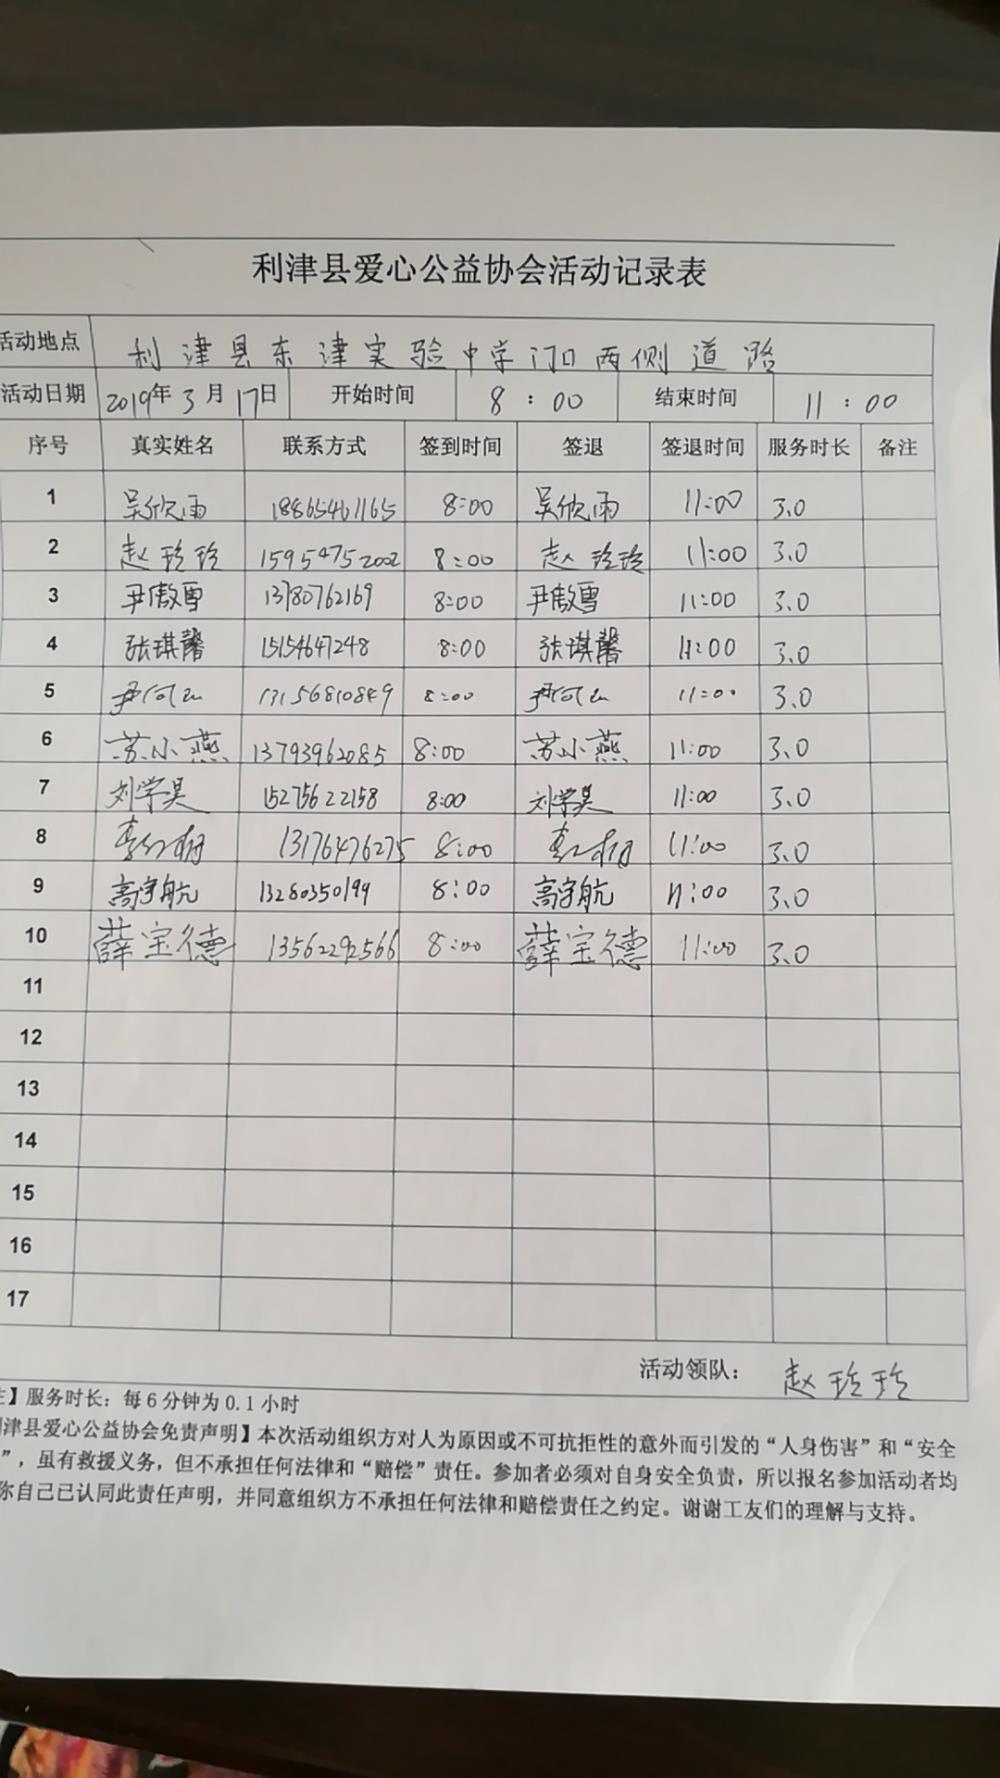 利津县爱心公益协会活动记录表
活动地点 利津县东津实验中学门口两侧道路
活动日期 2019年3月17日 开始时间 8:00 结束时间 11:00
序号 真实姓名 联系方式 签到时间 签退 签退时间 服务时长 备注
1 吴欣雨 18865461165 8:00 吴欣雨 11:00 3.0
2 赵玲玲 15954752002 8:00 赵玲玲 11:00 3.0
3 尹傲雪 13780762169 8:00 尹傲雪 11:00 3.0
4 张琪馨 15154647248 8:00 张琪馨 11:00 3.0
5 13156810849 8:00 11:00 3.0
6 苏小燕 13793962085 8:00 苏小燕 11:00 3.0
7 刘学昊 15275622158 8:00 刘学昊 11:00 3.0
8 13176476275 8:00 11:00 3.0
9 高宇航 13280350199 8:00 高宇航 11:00 3.0
10 薛宝德 13562292566 8:00 薛宝德 11:00 3.0
11
12
13
14
15
16
17
活动领队: 赵玲玲
】服务时长:每6分钟为0.1小时
津县爱心公益协会免责声明】本次活动组织方对人为原因或不可抗拒性的意外而引发的“人身伤害”和“安全
”,虽有救援义务,但不承担任何法律和“赔偿”责任。参加者必须对自身安全负责,所以报名参加活动者均
你自己已认同此责任声明,并同意组织方不承担任何法律和赔偿责任之约定。谢谢工友们的理解与支持。